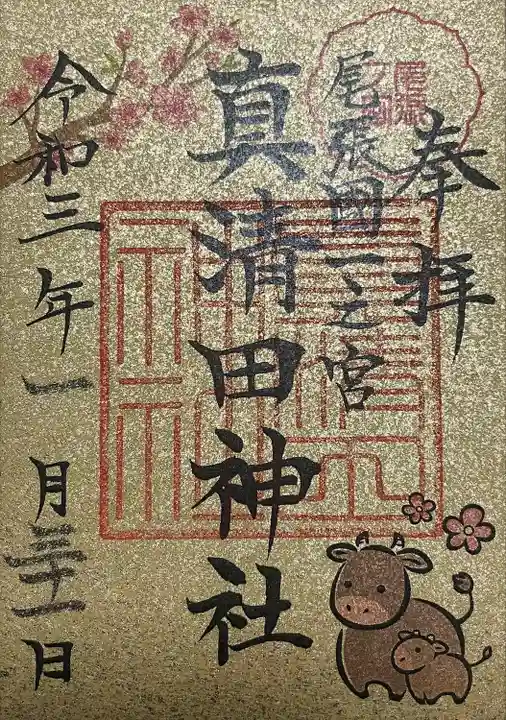 奉拝
尾張國一之宮
真清田神社
令和三年一月三十一日